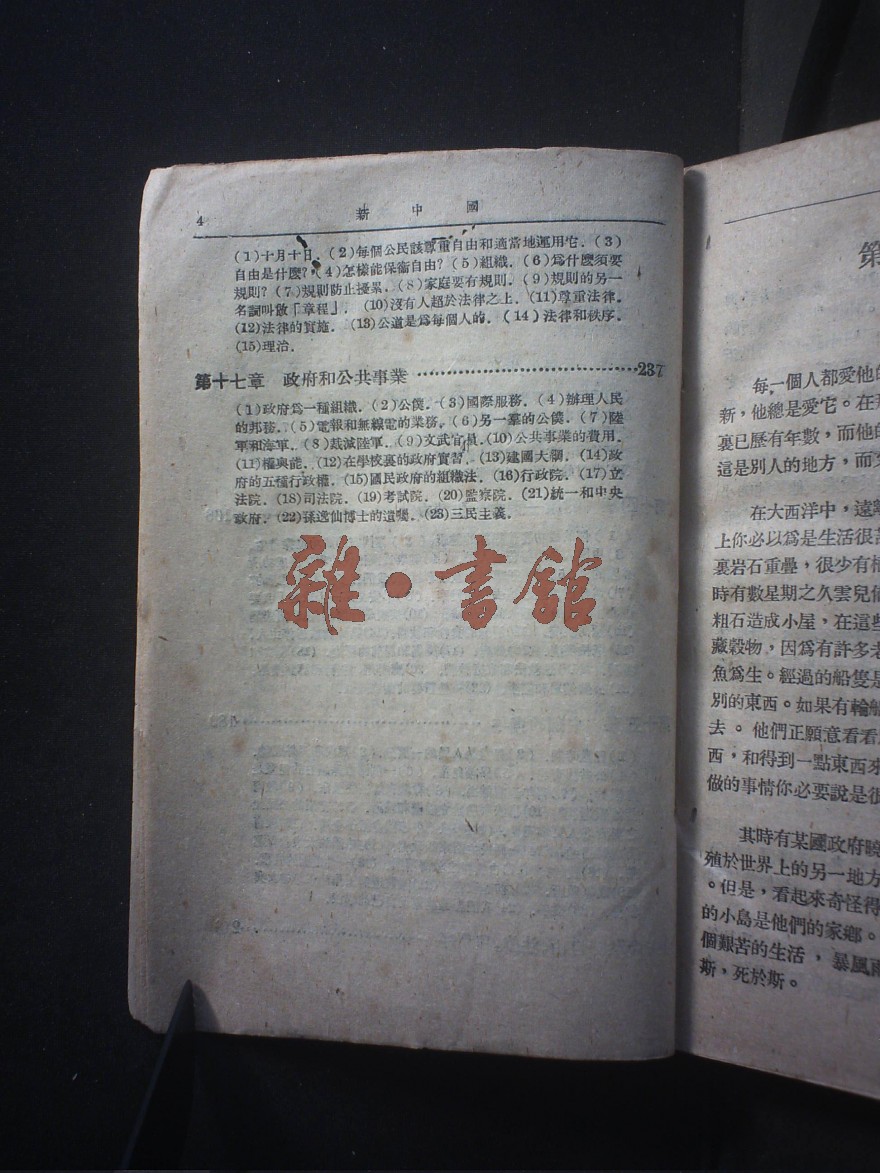 4
新中國
(1)十月十日. (2)每個公民該尊重自由和適當地運用它. (3)
自由是什麼? (4)怎樣能保衞自由? (5)組織. (6)爲什麼須要
規則? (7)規則防止擾累. (8)家庭要有規則. (9)規則的另一
名詞叫做「章程」. (10)沒有人超於法律之上. (11)尊重法律.
(12)法律的實施. (13)公道是爲每個人的. (14)法律和秩序.
(15)理治.
第十七章 政府和公共事業 ……………………………237
(1)政府爲一種組織. (2)公僕. (3)國際服務. (4)辦理人民
的邦務. (5)電報和無線電的業務. (6)另一羣的公僕. (7)陸
軍和海軍. (8)裁減陸軍. (9)文武官員. (10)公共事業的費用.
(11)權與能. (12)在學校裏的政府實習. (13)建國大綱. (14)政
府的五種行政權. (15)國民政府的組織法. (16)行政院. (17)立
法院. (18)司法院. (19)考試院. (20)監察院. (21)統一和中央
政府. (22)孫逸仙博士的遺囑. (23)三民主義.
雜·書館
第
每一個人都愛他的
新，他總是愛它。在
裏已歷有年數，而他的
這是別人的地方，而
在大西洋中，遠
上你必以爲是生活很
裏岩石重疊，很少有
時有數星期之久雲兒
粗石造成小屋，在這些
藏穀物，因爲有許多
魚爲生。經過的船隻是
別的東西。如果有輪船
去。他們正願意看看
西，和得到一點東西來
做的事情你必要說是很
其時有某國政府曉
殖於世界上的另一地方
。但是，看起來奇怪得
的小島是他們的家鄉。
個艱苦的生活，暴風雨
斯，死於斯。